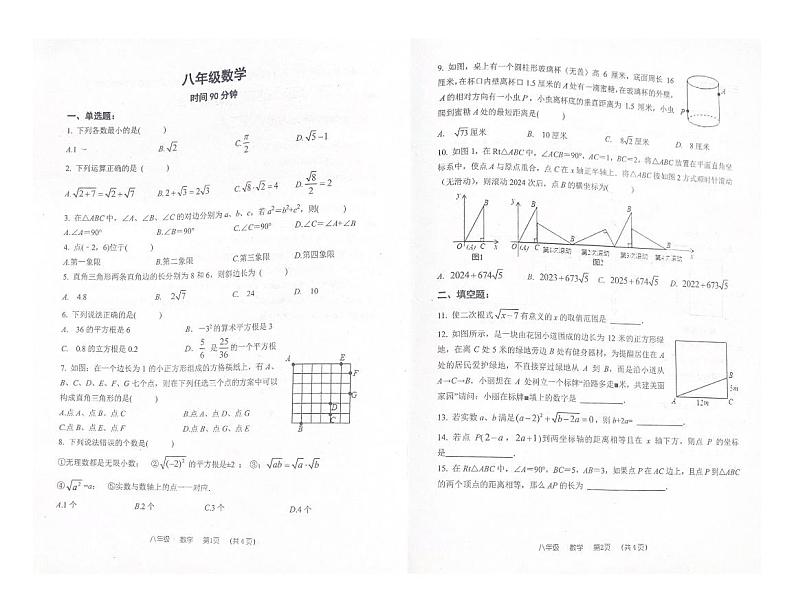 八年级数学
时间 90 分钟
一、单选题：
1. 下列各数最小的是( )
A.1 B.√2 C.π/2 D.√5−1
2. 下列运算正确的是 ( )
A.√(2+7)=√2+√7 B.2+√3=2√3 C.√8·√2=4 D.√8/2=2
3. 在△ABC中，∠A、∠B、∠C的对边分别为a、b、c，若a²=b²+c²，则( )
A.∠A=90° B.∠B=90° C.∠C=90° D.∠C=∠A+∠B
4. 点(-2，6)位于( )
A.第一象限 B.第二象限 C.第三象限 D.第四象限
5. 直角三角形两条直角边的长分别为 8 和 6，则斜边长为 ( )
A. 4.8 B. 2√7 C. 24 D. 10
6. 下列说法正确的是( )
A. 36 的平方根是 6 B. −3²的算术平方根是 3
C. 0.8 的立方根是 0.2 D. 5/6 是25/36的一个平方根
7. 如图：在一个边长为 1 的小正方形组成的方格稿纸上，有 A、
B、C、D、E、F、G 七个点，则在下列任选三个点的方案中可以
构成直角三角形的是( )
A.点 A、点 B、点 C B.点 A、点 D、点 G
C.点 B、点 E、点 F D.点 B、点 G、点 E
A E F G D C B
8. 下列说法错误的个数是( )
①无理数都是无限小数； ②√(−2)² 的平方根是±2； ③；√ab=√a·√b
④√a²=a； ⑤实数与数轴上的点一一对应.
A.1 个 B.2 个 C.3 个 D.4 个
八年级 数学 第1页 （共 4 页）
9. 如图，桌上有一个圆柱形玻璃杯（无盖）高 6 厘米，底面周长 16
厘米，在杯口内壁离杯口 1.5 厘米的 A 处有一滴蜜糖，在玻璃杯的外壁，
A 的相对方向有一小虫 P，小虫离杯底的垂直距离为 1.5 厘米，小虫
爬到蜜糖 A 处的最短距离是( )
P A
A. √73厘米 B. 10 厘米 C. 8√2厘米 D. 8 厘米
10. 如图 1，在 Rt△ABC 中，∠ACB=90°，AC=1，BC=2，将△ABC 放置在平面直角坐
标系中，使点 A 与原点重合，点 C 在 x 轴正半轴上．将△ABC 按如图 2 方式顺时针滚动
（无滑动），则滚动 2024 次后，点 B 的横坐标为( )
y B O (A) C x 图1
y B B B O (A) C 第1次滚动 第2次滚动 第3次滚动 第4次滚动 x 图2
A. 2024+674√5 B. 2023+673√5 C. 2025+674√5 D. 2022+673√5
二、填空题：
11. 使二次根式√(x−7)有意义的 x 的取值范围是 ______.
12. 如图所示，是一块由花园小道围成的边长为 12 米的正方形绿
地，在离 C 处 5 米的绿地旁边 B 处有健身器材，为提醒居住在 A
处的居民爱护绿地，不直接穿过绿地从 A 到 B，而是沿小道从
A→C→B，小丽想在 A 处树立一个标牌“沿路多走■米，共建美丽
家园”请问：小丽在标牌■填上的数字是 ______.
B 5m A 12m C
13. 若实数 a、b 满足(a−2)²+√(b−2a)=0，则 b+2a= ______.
14. 若点 P(2−a， 2a+1)到两坐标轴的距离相等且在 x 轴下方，则点 P 的坐标
是______.
15. 在 Rt△ABC 中，∠A=90°，BC=5，AB=3，如果点 P 在 AC 边上，且点 P 到△ABC
的两个顶点的距离相等，那么 AP 的长为 ______.
八年级 数学 第2页 （共 4 页）